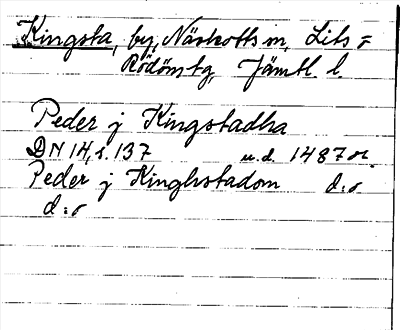 Kingsta, by, Näskotts sn, Lits =
Rödöns tg, Jämtl. l.
Peder j Kingstadha
DN 14, s. 137 u.d. 1487
Peder j Kinghstadom d:o
d:o